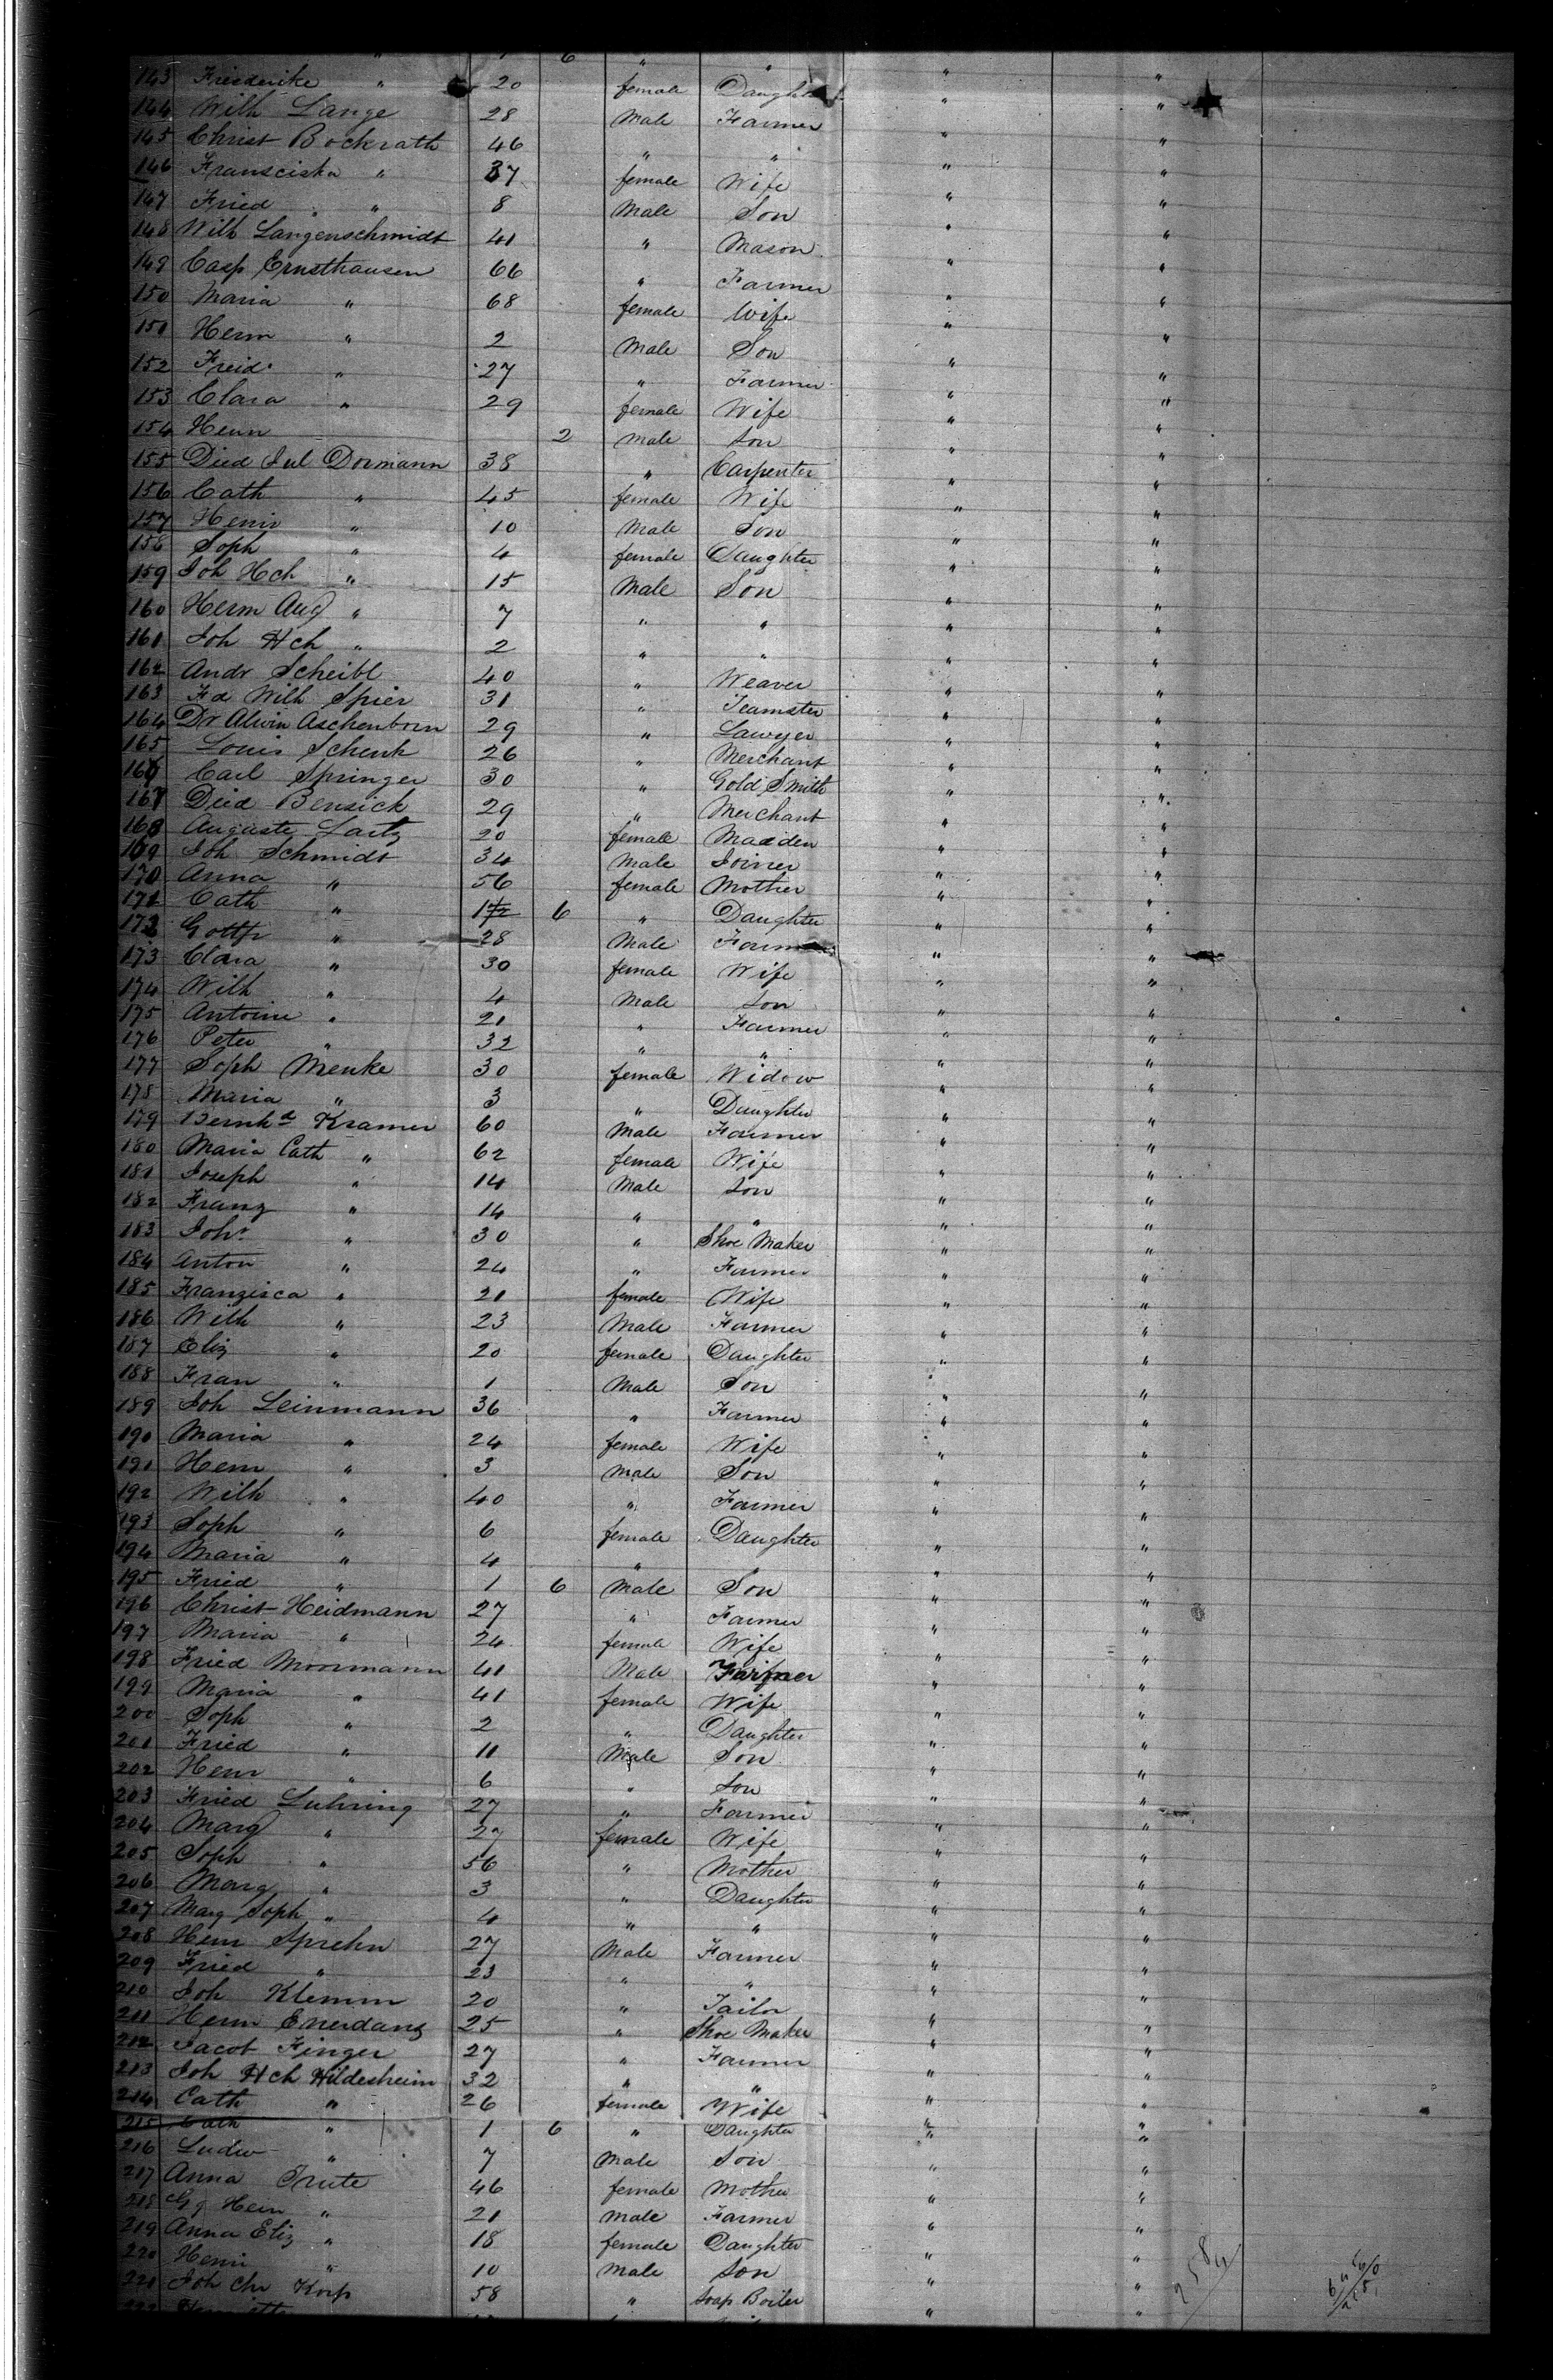 6 " "
143 Friederike " 20 female Daughter " "
144 Wilh Lange 28 Male Farmer " "
145 Christ Bockrath 46 " " " "
146 Fransciska " 37 female Wife " "
147 Fried " 8 Male Son " "
148 Wilh Langenschmidt 41 " Mason " "
149 Casp Ernsthausen 66 " Farmer " "
150 Maria " 68 female Wife " "
151 Herm " 2 Male Son " "
152 Freid " 27 " Farmer " "
153 Clara " 29 female Wife " "
154 Henn 2 male son " "
155 Died Jul Dormann 38 " Carpenter " "
156 Cath " 45 female Wife " "
157 Henr " 10 Male Son " "
158 Soph " 4 female Daughter " "
159 Joh Hch " 15 Male Son " "
160 Herm Aug " 7 " " " "
161 Joh Hch " 2 " " " "
162 Andr Scheibl 40 " Weaver " "
163 Fd Wilh Spier 31 " Teamster " "
164 Dr Alwin Aschenborn 29 " Lawyer " "
165 Louis Schenk 26 " Merchant " "
166 Carl Springer 30 " Gold Smith " "
167 Died Bensick 29 " Merchant " "
168 Auguste Lartz 20 female Maiden " "
169 Joh Schmidt 34 Male Joiner " "
170 Anna " 56 female Mother " "
171 Cath " 1 6 " Daughter " "
172 Gottfr " 28 Male Farmer " "
173 Clara " 30 female Wife " "
174 Wilh " 4 Male Son " "
175 Antoine " 21 " Farmer " "
176 Peter " 32 " " " "
177 Soph Menke 30 female Widow " "
178 Maria " 3 " Daughter " "
179 Bernhd Kramer 60 Male Farmer " "
180 Maria Cath " 62 female Wife " "
181 Joseph " 14 Male Son " "
182 Franz " 14 " " " "
183 Johs " 30 " Shoe Maker " "
184 Anton " 24 " Farmer " "
185 Franzisca " 21 female Wife " "
186 Wilh " 23 Male Farmer " "
187 Eliz " 20 female Daughter " "
188 Fran " 1 Male Son " "
189 Joh Leinmann 36 " Farmer " "
190 Maria " 24 female Wife " "
191 Henr " 3 Male Son " "
192 Wilh " 40 " Farmer " "
193 Soph " 6 female Daughter " "
194 Maria " 4 " " "
195 Fried " 1 6 Male Son " "
196 Christ Heidmann 27 " Farmer " "
197 Maria " 24 female Wife " "
198 Fried Moormann 41 Male Farmer " "
199 Maria " 41 female Wife " "
200 Soph " 2 " Daughter " "
201 Fried " 11 Male Son " "
202 Henr " 6 " Son " "
203 Fried Luhring 27 " Farmer " "
204 Marg " 27 female Wife " "
205 Soph " 56 " Mother " "
206 Marg " 3 " Daughter " "
207 Marg Soph " 4 " " " "
208 Henr Sprehn 27 Male Farmer " "
209 Fried " 23 " " " "
210 Joh Klemm 20 " Tailor " "
211 Herm Enerdanz 25 " Shoe Maker " "
212 Jacob Finger 27 " Farmer " "
213 Joh Hch Hildesheim 32 " " " "
214 Cath " 26 female Wife " "
215 Cath " 1 6 " Daughter " "
216 Ludw " 7 Male Son " "
217 Anna Trute 46 female Mother " "
218 Gg Henr " 21 male Farmer " "
219 Anna Eliz " 18 female Daughter " "
220 Henr " 10 male Son " "
221 Joh Chr Korp 58 " Soap Boiler " "